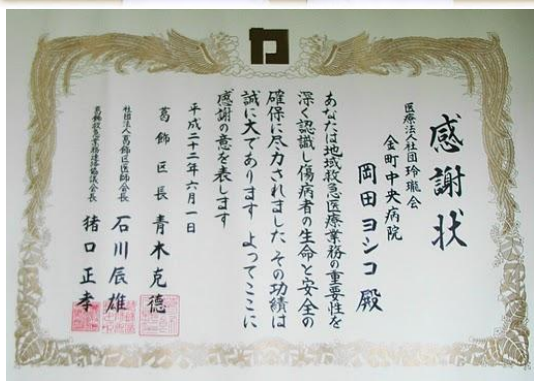 感謝状
医療法人社団玲瓏会
金町中央病院
岡田ヨシコ 殿
あなたは地域救急医療業務の重要性を
深く認識し傷病者の生命と安全の
確保に尽力されました その功績は
誠に大であります よってここに
感謝の意を表します
平成二十二年六月一日
葛飾区長 青木克德
社団法人葛飾区医師会長 石川辰雄
葛飾救急業務連絡協議会長 猪口正孝